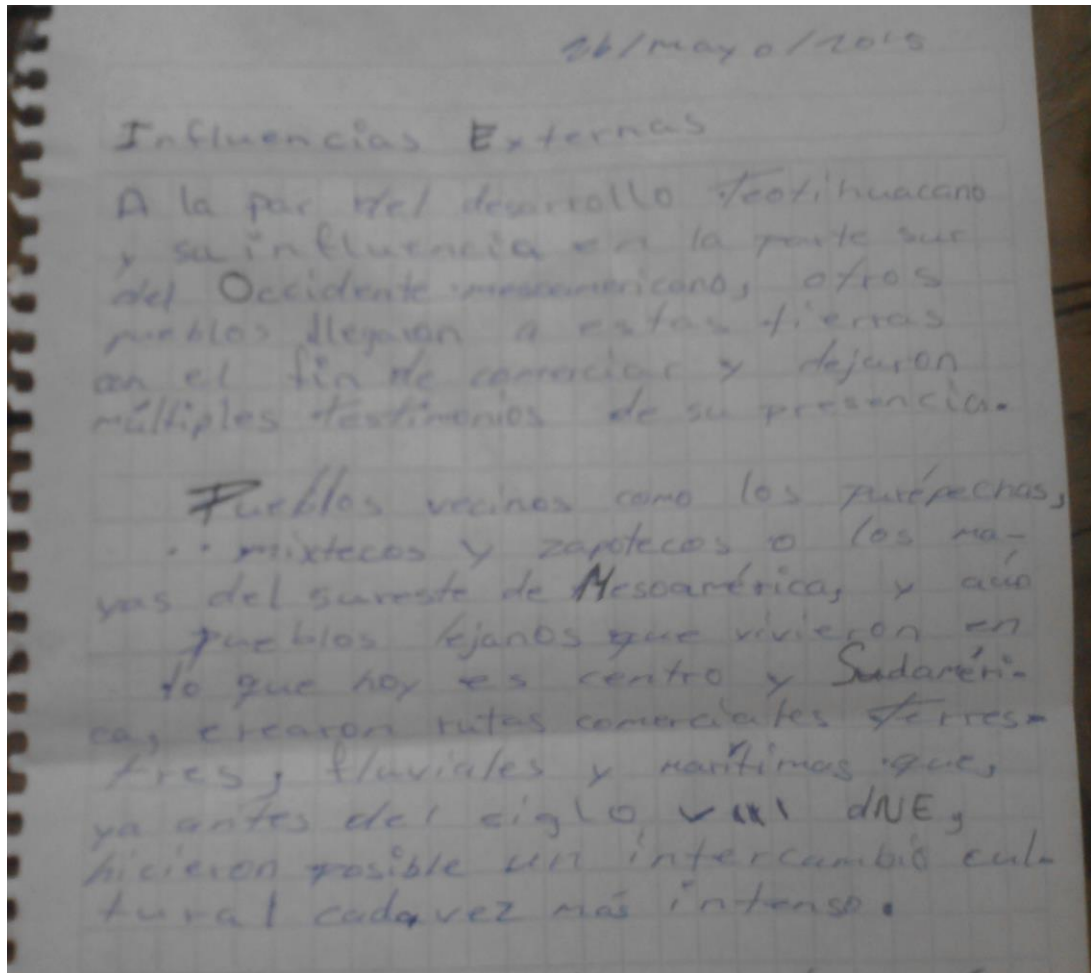 26/mayo/2015
Influencias Externas
A la par del desarrollo teotihuacano
y su influencia en la parte sur
del Occidente mesoamericano, otros
pueblos llegaron a estas tierras
con el fin de comerciar y dejaron
múltiples testimonios de su presencia.
Pueblos vecinos como los purépechas,
mixtecos y zapotecos o los ma-
yas del sureste de Mesoamérica, y aún
pueblos lejanos que vivieron en
lo que hoy es centro y Sudaméri-
ca, crearon rutas comerciales terres-
tres, fluviales y marítimas que,
ya antes del siglo VIII dNE,
hicieron posible un intercambio cul-
tural cada vez más intenso.